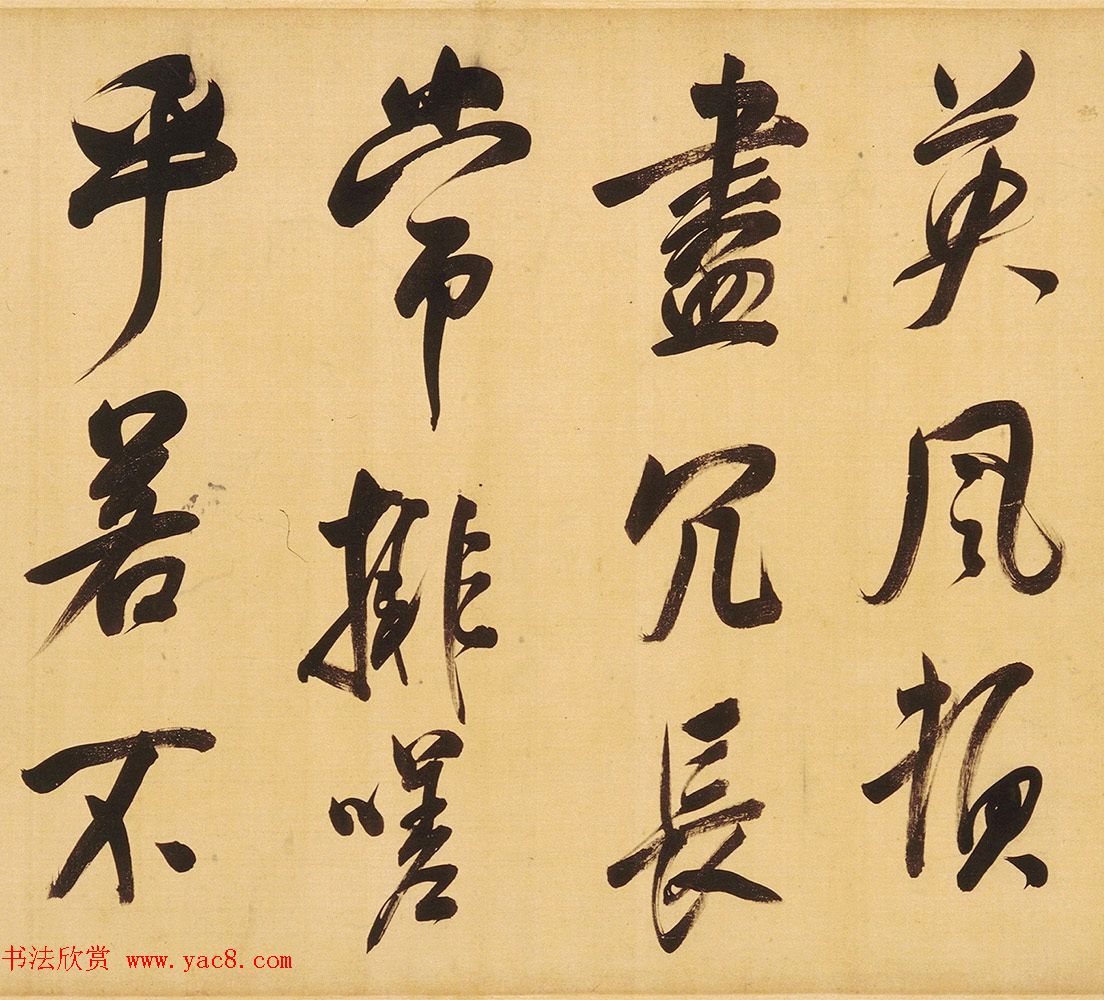 英風損
盡冗長
常排嗟
乎若不
书法欣赏 www.yac8.com